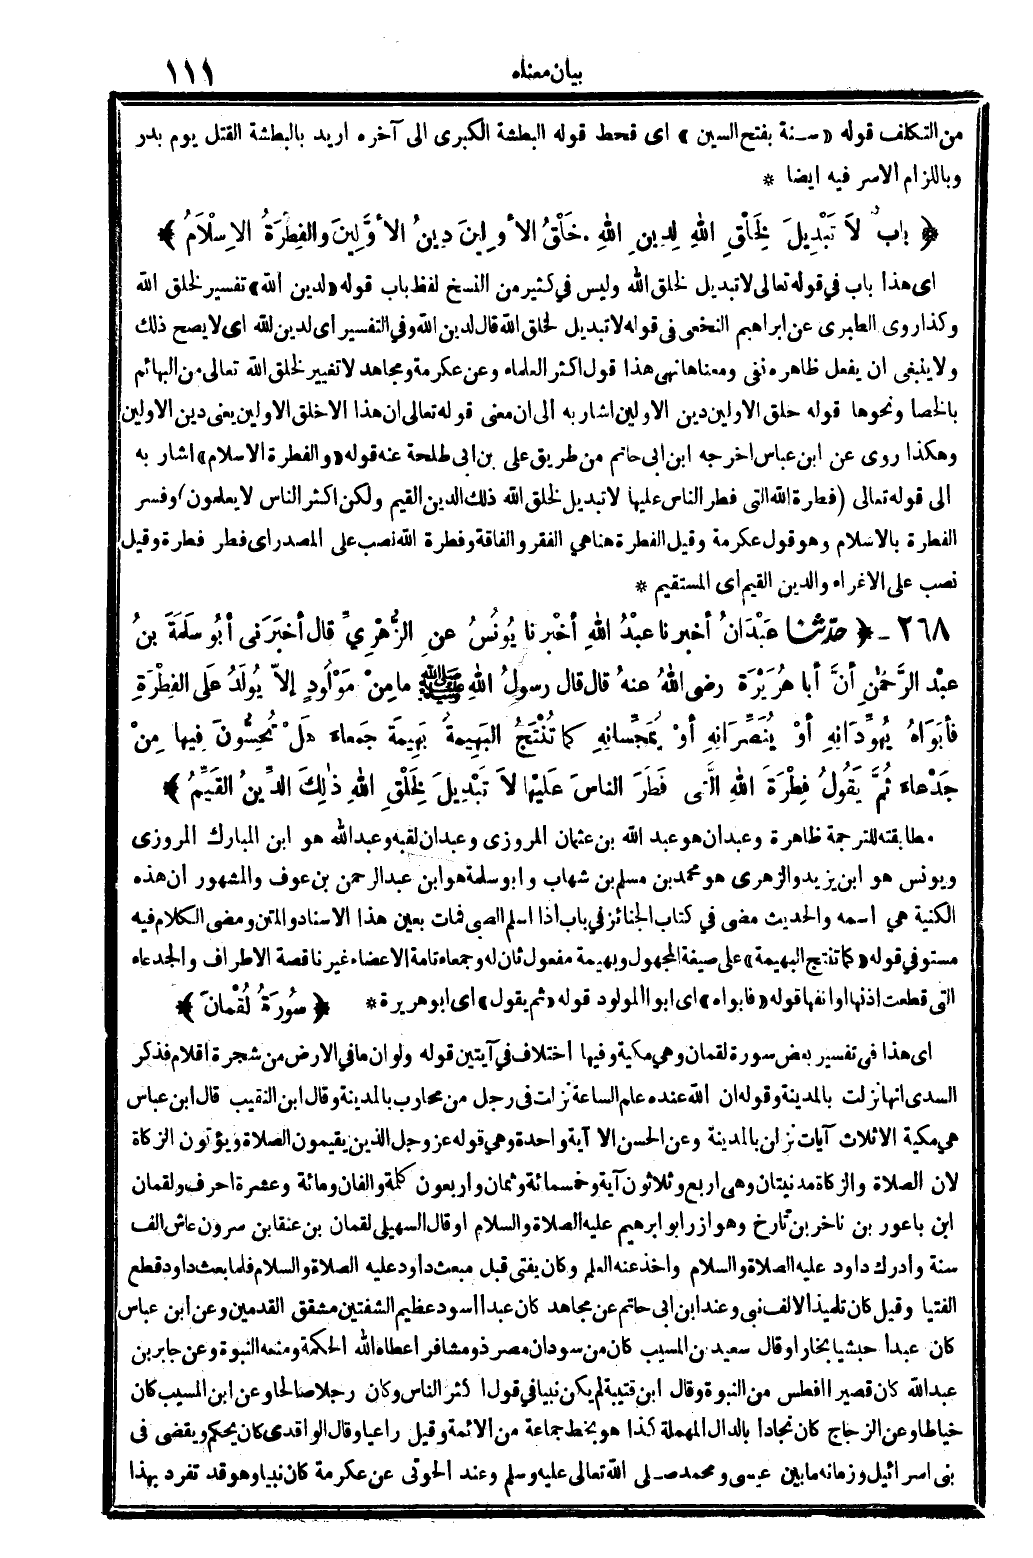 بيان معناه ١١١
من التكلف قوله «سنة بفتح السين» اى قحط قوله البطشة الكبرى الى آخره اريد بالبطشة القتل يوم بدر
وباللزام الاسر فيه ايضا *
﴿ بابٌ لاَ تَبْدِيلَ لِخَلْقِ اللهِ لِدِينِ اللهِ . خَلْقُ الأَوَّلِينَ دِينُ الأَوَّلِينَ والفِطْرَةُ الإِسْلاَمُ ﴾
اى هذا باب في قوله تعالى لا تبديل لخلق الله وليس في كثير من النسخ لفظ باب قوله «لدين الله» تفسير لخلق الله
وكذا روى الطبرى عن ابراهيم النخعى فى قوله لا تبديل لخلق الله قال لدين الله وفي التفسير اى لدين لله اى لا يصح ذلك
ولا ينبغى ان يفعل ظاهره نفى ومعناها نهى هذا قول اكثر العلماء وعن عكرمة ومجاهد لا تغيير لخلق الله تعالى من البهائم
بالخصا ونحوها قوله خلق الاولين دين الاولين اشار به الى ان معنى قوله تعالى ان هذا الا خلق الاولين يعنى دين الاولين
وهكذا روى عن ابن عباس اخرجه ابن ابى حاتم من طريق على بن ابى طلحة عنه قوله «والفطرة الاسلام» اشار به
الى قوله تعالى (فطرة الله التى فطر الناس عليها لا تبديل لخلق الله ذلك الدين القيم ولكن اكثر الناس لا يعلمون) وفسر
الفطرة بالاسلام وهو قول عكرمة وقيل الفطرة هنا هي الفقر والفاقة وفطرة الله نصب على المصدر اى فطر فطرة وقيل
نصب على الاغراء والدين القيم اى المستقيم *
٢٦٨ - ﴿ حدّثنا عَبْدَانُ أخبرنا عبْدُ اللهِ أخْبرنا يُونُسُ عنِ الزُّهْرِيِّ قال أخبَرَنى أبُو سلَمَةَ بنُ
عبْدِ الرَّحْمٰنِ أنَّ أبا هُرَيْرَةَ رضى اللهُ عنهُ قال قال رسولُ اللهِ ﷺ ما مِنْ مَوْلُودٍ إلاَّ يُولَدُ علَى الفِطْرَةِ
فأبَوَاهُ يُهَوِّدَانِهِ أوْ يُنَصِّرَانِهِ أوْ يُمَجِّسانِهِ كما تُنْتَجُ البَهِيمةُ بَهِيمَةً جَمعاءَ هَلْ تُحِسُّونَ فِيها مِنْ
جَدْعاءَ ثُمَّ يَقُولُ فِطْرَةَ اللهِ الَّتى فَطَرَ الناسَ عَلَيْها لاَ تَبْدِيلَ لِخَلْقِ اللهِ ذٰلِكَ الدِّينُ القَيِّمُ ﴾
مطابقته للترجمة ظاهرة وعبدان هو عبد الله بن عثمان المروزى وعبدان لقبه وعبد الله هو ابن المبارك المروزى
ويونس هو ابن يزيد والزهرى هو محمد بن مسلم بن شهاب وابو سلمة هو ابن عبد الرحمن بن عوف والمشهور ان هذه
الكنية هي اسمه والحديث مضى في كتاب الجنائز في باب اذا اسلم الصبى فمات بعين هذا الاسناد والمتن ومضى الكلام فيه
مستوفي قوله «كما تنتج البهيمة» على صيغة المجهول وبهيمة مفعول ثان له وجمعاء تامة الاعضاء غير ناقصة الاطراف والجدعاء
التى قطعت اذنها او انفها قوله «فابواه» اى ابوا المولود قوله «ثم يقول» اى ابو هريرة * ﴿ سُورَةُ لُقْمانَ ﴾
اى هذا فى تفسير بعض سورة لقمان وهى مكية وفيها اختلاف في آيتين قوله ولو ان ما في الارض من شجرة اقلام فذكر
السدى انها نزلت بالمدينة وقوله ان الله عنده علم الساعة نزلت فى رجل من محارب بالمدينة وقال ابن النقيب قال ابن عباس
هي مكية الا ثلاث آيات نزلن بالمدينة وعن الحسن الا آية واحدة وهي قوله عز وجل الذين يقيمون الصلاة ويؤتون الزكاة
لان الصلاة والزكاة مدنيتان وهى اربع وثلاثون آية وخمسمائة وثمان واربعون كلمة والفان ومائة وعشرة احرف ولقمان
ابن باعور بن ناخر بن تارخ وهو ازر ابو ابرهيم عليه الصلاة والسلام او قال السهيلى لقمان بن عنقا بن سرون عاش الف
سنة وأدرك داود عليه الصلاة والسلام واخذ عنه العلم وكان يفتى قبل مبعث داود عليه الصلاة والسلام فلما بعث داود قطع
الفتيا وقيل كان تلميذا لالف نبى وعند ابن ابى حاتم عن مجاهد كان عبدا اسود عظيم الشفتين مشقق القدمين وعن ابن عباس
كان عبدا حبشيا نجارا وقال سعيد بن المسيب كان من سودان مصر ذو مشافر اعطاه الله الحكمة ومنعه النبوة وعن جابر بن
عبد الله كان قصيرا افطس من النبوة وقال ابن قتيبة لم يكن نبيا في قول اكثر الناس وكان رجلا صالحا وعن ابن المسيب كان
خياطا وعن الزجاج كان نجادا بالدال المهملة كذا هو بخط جماعة من الائمة وقيل راعيا وقال الواقدى كان يحكم ويقضى فى
بنى اسرائيل وزمانه ما بين عيسى ومحمد صلى الله تعالى عليه وسلم وعند الحوتى عن عكرمة كان نبيا وهو قد تفرد بهذا